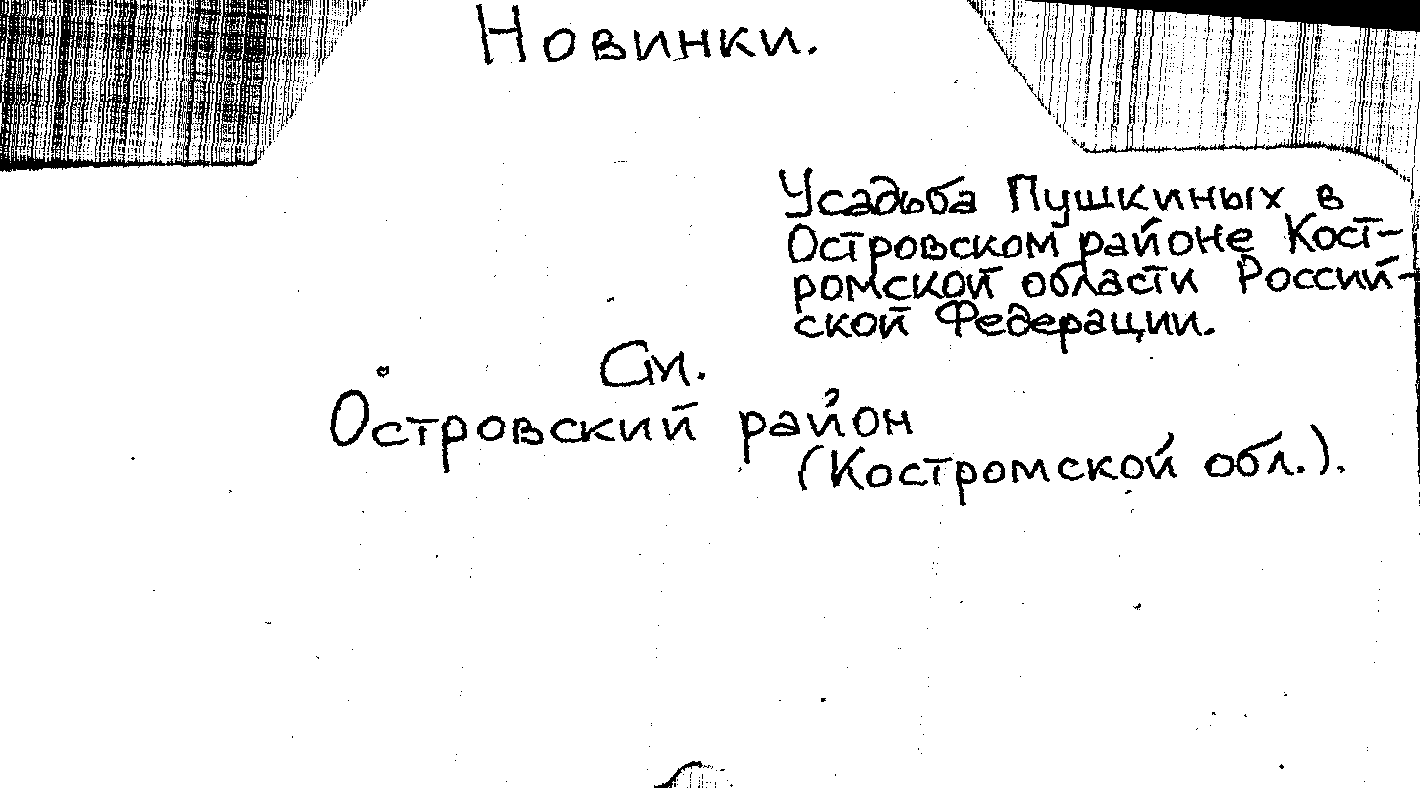 Новинки.
Усадьба Пушкиных в
Островском районе Кост-
ромской области Россий-
ской Федерации.
См.
Островский район
(Костромской обл.).